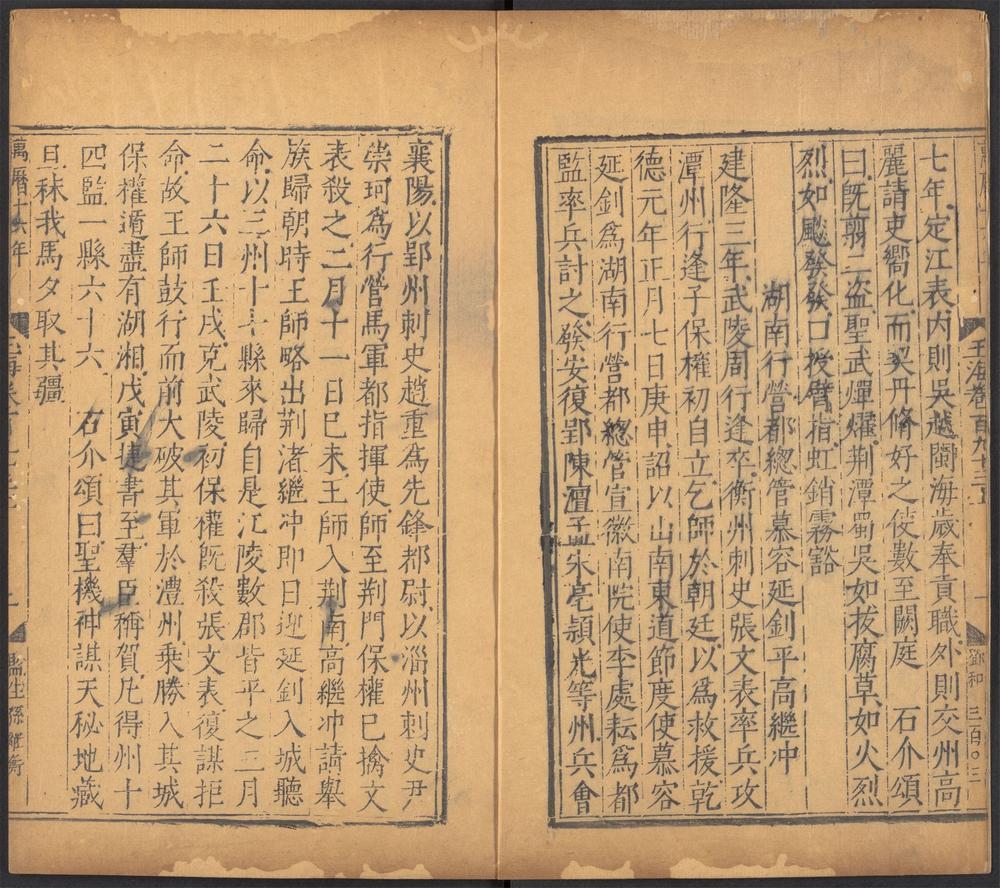 玉海卷百九十三
鄧和 三百〇三
七年定江表内則吳越閩海歲奉貢職外則交州高
麗請吏嚮化而契丹脩好之使數至闕庭 石介頌
曰旣翦二盗聖武燀燿荆潭蜀吳如拔腐草如火烈
烈如飈發發口授臂指虹銷霧豁
湖南行營都總管慕容延釗平高繼冲
建隆三年武陵周行逢卒衡州刺史張文表率兵攻
潭州行逢子保權初自立乞師於朝廷以爲救援乾
德元年正月七日庚申詔以山南東道節度使慕容
延釗爲湖南行營都總管宣徽南院使李處耘爲都
監率兵討之發安復郢陳澶孟宋亳潁光等州兵會
襄陽以郢州刺史趙重爲先鋒都尉以淄州刺史尹
崇珂爲行營馬軍都指揮使師至荆門保權已擒文
表殺之二月十一日巳未王師入荆南高繼冲請舉
族歸朝時王師略出荆渚繼冲即日迎延釗入城聽
命以三州十七縣來歸自是江陵數郡皆平之三月
二十六日壬戌克武陵初保權旣殺張文表復謀拒
命故王師鼓行而前大破其軍於澧州乗勝入其城
保權遁盡有湖湘戊寅捷書至羣臣稱賀凡得州十
四監一縣六十六 石介頌曰聖機神謀天秘地藏
旦秣我馬夕取其疆
萬曆十六年
監生孫維衡